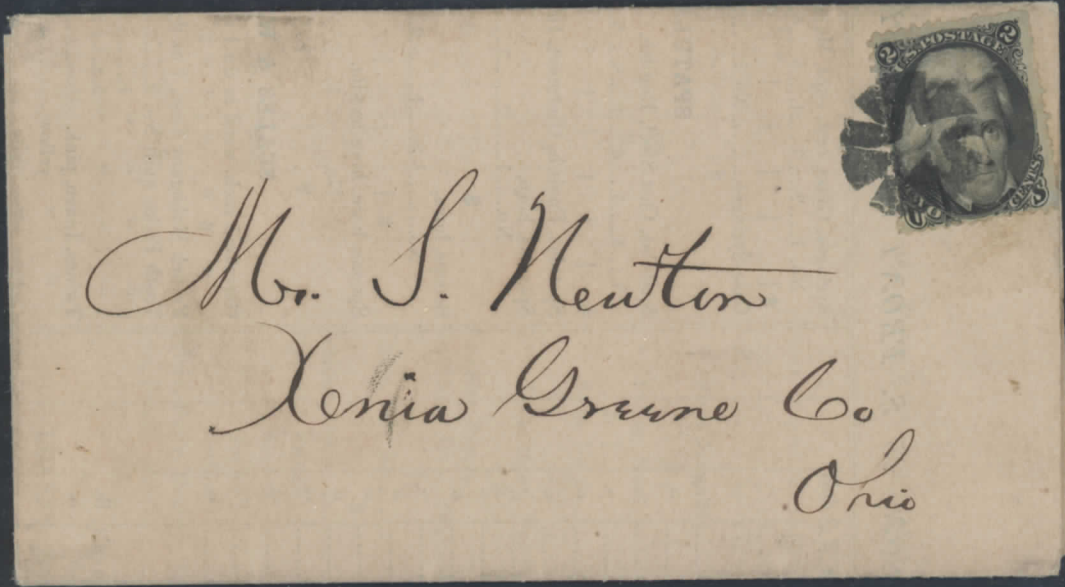 U.S. POSTAGE
2 2
Mr. S. Newton
Xenia Greene Co
Ohio